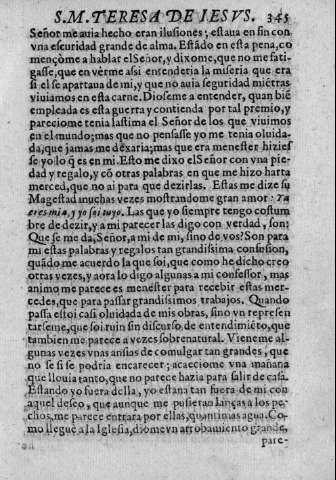 S. M. TERESA DE IESVS. 345
Señor me auia hecho eran ilusiones; estaua en fin con
vna escuridad grande de alma. Estãdo en esta pena, co
mençòme a hablar el Señor, y dixome, que no me fati-
gasse, que en vèrme assi entenderia la miseria que era
si el se apartaua de mi, y que no auia seguridad miẽtras
viuiamos en esta carne. Dioseme a entender, quan biẽ
empleada es esta guerra y contienda por tal premio, y
pareciome tenia lastima el Señor de los que viuimos
en el mundo; mas que no pensasse yo me tenia oluida-
da, que jamas me dexaria; mas que era menester hiziess
se yo lo q̃ es en mi. Esto me dixo el Señor con vna pie-
dad y regalo, y cõ otras palabras en que me hizo harta
merced, que no ai para que dezirlas. Estas me dize su
Magestad muchas vezes mostrandome gran amor: Tu
eres mia, y yo soi tuyo. Las que yo siempre tengo costum
bre de dezir, y a mi parecer las digo con verdad, son:
Que se me da, Señor, a mi de mi, sino de vos? Son para
mi estas palabras y regalos tan grandissima confusion,
quãdo me acuerdo la que soi, que como he dicho creo
otras vezes, y aora lo digo algunas a mi confessor, mas
animo me parece es menester para recebir estas mer-
cedes, que para passar grandissimos trabajos. Quando
passa estoi casi oluidada de mis obras, sino vn represen
tarseme, que soi ruin sin discurso de entendimiẽto, que
tambien me parece a vezes sobrenatural. Vieneme al-
gunas vezes vnas ansias de comulgar tan grandes, que
no se si se podria encarecer; acaeciome vna mañana
que llouia tanto, que no parece hazia para salir de casa.
Estando yo fuera della, yo estaua tan fuera de mi con
aquel desseo, que aunque me pusieran lanças a los pe-
chos, me parece entrara por ellas, quantimas agua. Co-
mo lleguè a la Iglesia, diome vn arrobamiento grande,
pare-